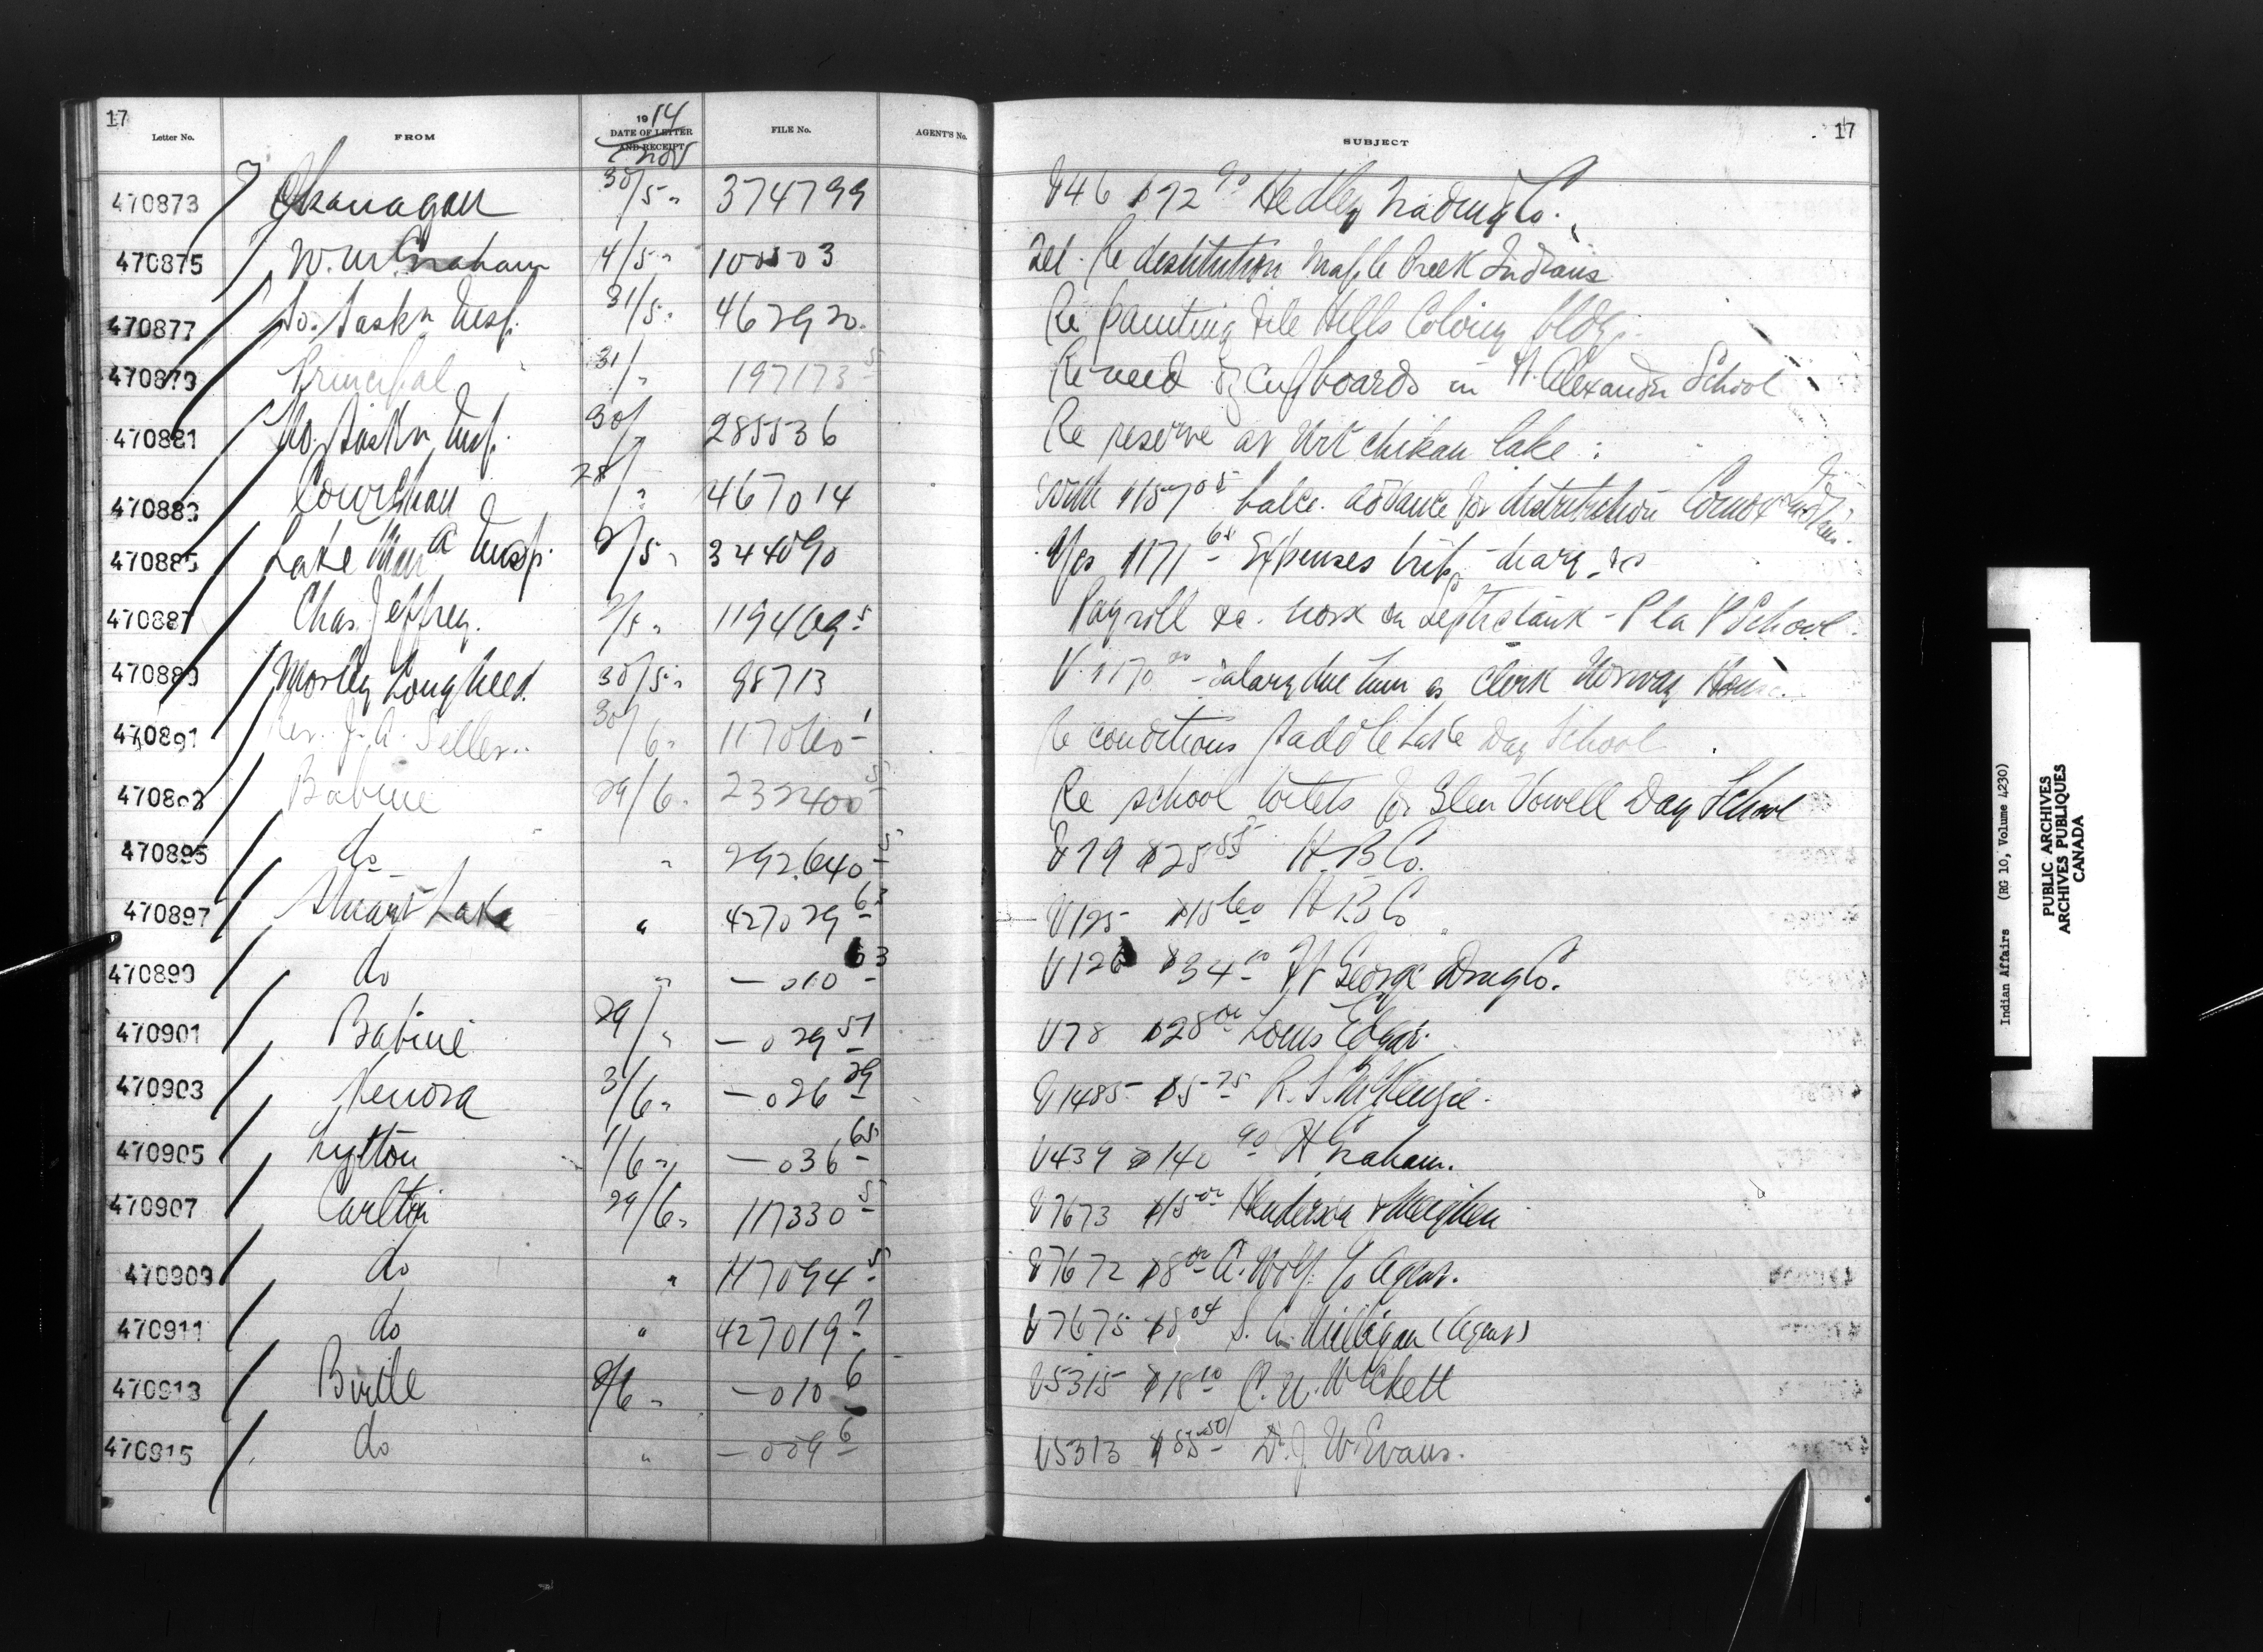 17
Letter No. FROM 1914 DATE OF LETTER AND RECEIPT Nov FILE No. AGENT'S No. SUBJECT 17
470873 Okanagan 30/5 " 374799 V46 $72 90 Hedley Trading Co.
470875 W. M. Graham 4/5 " 100503 Tel. Re destitution Maple Creek Indians
470877 So. Saskn Insp. 31/5 " 462920 Re painting File Hills Colony bldg.
470879 Principal 31/ " 197173 5 Re need of cupboards in Ft. Alexander School
470881 No. Saskn Insp. 30/ " 285536 Re reserve at Witchikan Lake
470883 Cowichan 28/ " 467014 With $157 05 balce. advance for distribution Comox Indians
470885 Lake Man a Insp. 2/5 " 344090 Expenses trip, diary, &c
470887 Chas. Jeffrey. 2/5 " 119469 5 Payroll &c. work on septic tank - P la P School
470889 Morley Lougheed 30/5 " 98713 V. $170 00 - Salary due him as Clerk Norway House
470891 Rev. J. A. Seller 30/6 " Re conditions Saddle Lake Day School
470893 Babine 29/6 " 232400 5 Re school toilets for Glen Vowell Day School
470895 do " 292640 5 V79 $25 85 H. B. Co.
470897 Stuart Lake " 427029 63 V125 $15 60 H B Co
470899 do " - 010 63 V126 $34 10 Ft George Drug Co.
470901 Babine 29/ " - 029 51 V78 $28 00 Louis Edgar.
470903 Kenora 3/6 " - 026 29 V1485 $5 75 R. S. McKenzie.
470905 Lytton 1/6 " - 036 65 V439 $140 90 H Graham.
470907 Carlton 29/6 " 117330 5 V7673 $15 00 Henderson & Meighen
470909 do " 117094 5 V7672 $8 00 A. Wolf c/o Agent.
470911 do " 427019 7 V7675 $8 04 S. A. Milligan (Agent)
470913 Birtle 2/6 " - 010 6 V5315 $18 10 C. N. Wickett
470915 do " - 009 6 V5313 $85 50 Dr. J. W. Evans.
Indian Affairs (RG 10, Volume 4230)
PUBLIC ARCHIVES
ARCHIVES PUBLIQUES
CANADA